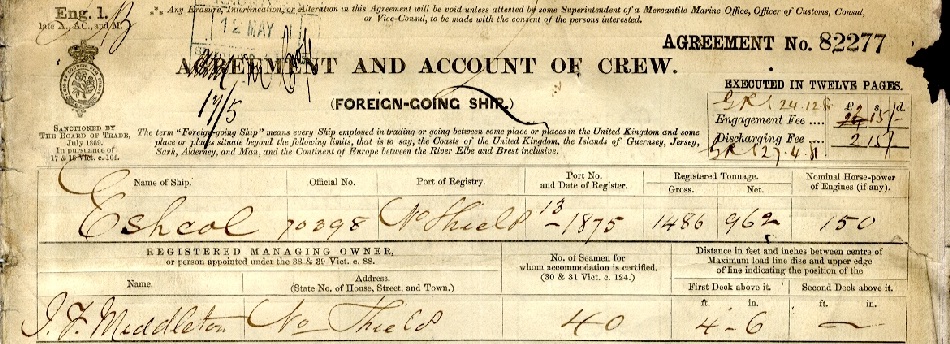 Eng. 1.
∴ Any Erasure, Interlineation, or Alteration in this Agreement will be void unless attested by some Superintendent of a Mercantile Marine Office, Officer of Customs, Consul,
or Vice-Consul, to be made with the consent of the persons interested.
12 MAY
AGREEMENT No. 82277
AGREEMENT AND ACCOUNT OF CREW.
17/5
(FOREIGN-GOING SHIP.)
EXECUTED IN TWELVE PAGES.
24.12.8 £ s. d.
Engagement Fee .... 15/-
Discharging Fee .. 2 15/-
SANCTIONED BY
THE BOARD OF TRADE,
July 1889.
In pursuance of
17 & 18 Vict. c. 104.
The term "Foreign-going Ship" means every Ship employed in trading or going between some place or places in the United Kingdom and some
place or places situate beyond the following limits, that is to say, the Coasts of the United Kingdom, the Islands of Guernsey, Jersey,
Sark, Alderney, and Man, and the Continent of Europe between the River Elbe and Brest inclusive.
Name of Ship. Official No. Port of Registry. Port No. and Date of Register. Registered Tonnage. Gross. Net. Nominal Horse-power of Engines (if any).
Eshcol 70398 No Shield 13 - 1875 1486 962 150
REGISTERED MANAGING OWNER,
or person appointed under the 38 & 39 Vict. c. 88.
No. of Seamen for
whom accommodation is certified.
(30 & 31 Vict. c. 124.)
Distance in feet and inches between centre of
Maximum load line disc and upper edge
of line indicating the position of the
Name. Address. (State No. of House, Street, and Town.) First Deck above it. Second Deck above it.
ft. in. ft. in.
J. F. Middleton No Shield 40 4-6 —